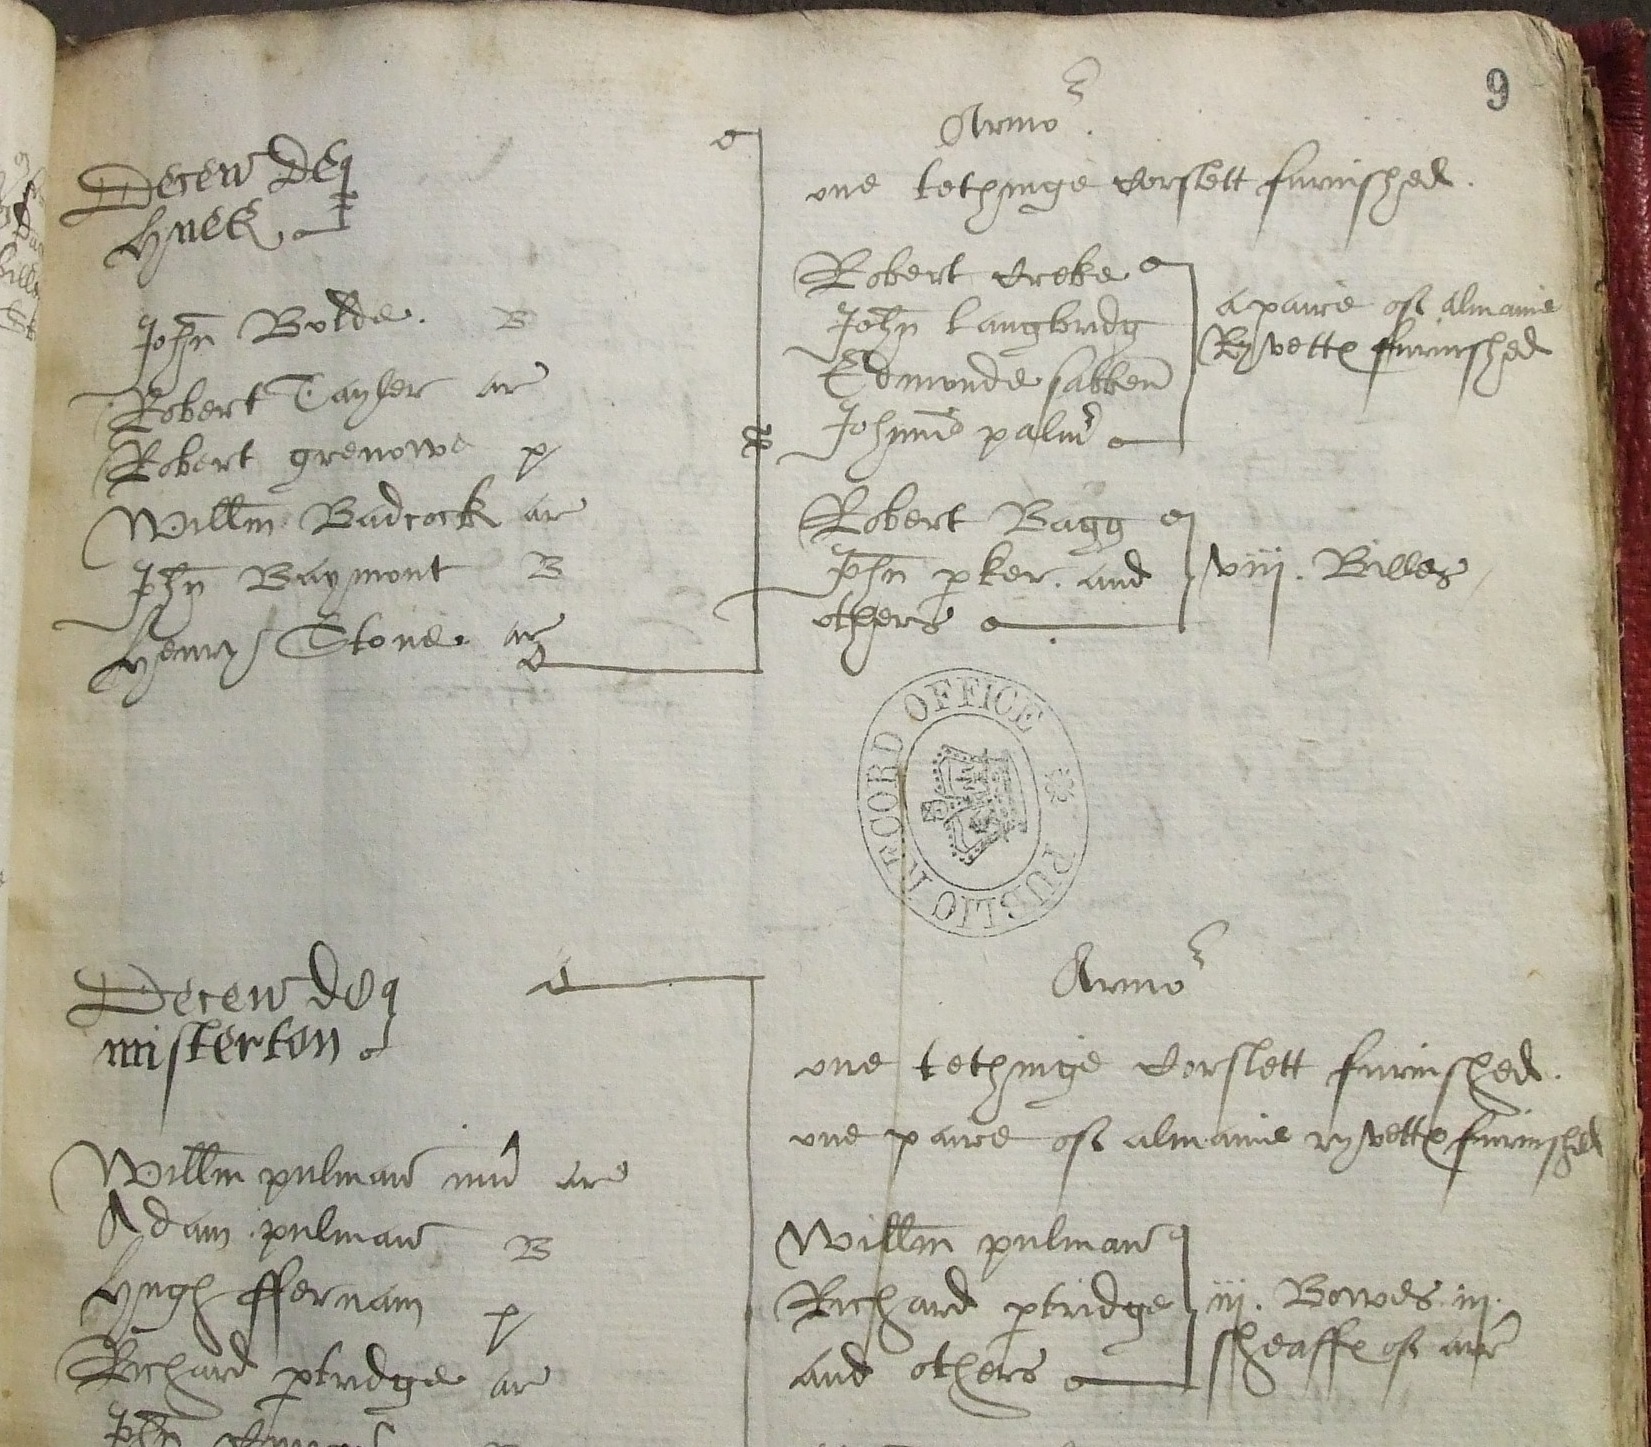 9
Decen de
huek
John Bolde. B
Robert Tayler ar
Robert grenowe p
Willm Badcock ar
Jhn Baymont B
Henry Stone ar
Armor
one tethinge corslett furnished.
Robert Creke
John Langbridg
Edmonde sabben
Johnne palmr
a paire of almaine
Ryvette furnished
Robert Bagg
Jhn pker. and
others
viij. Billes
PUBLIC RECORD OFFICE
Decen de
misterton
Willm pulman ar
Adam pulman B
Hugh ffernam p
Richard ptridge ar
Jhn
Armor
one tethinge corslett furnished.
one paire of almaine ryvette furnished
Willm pulman
Richard ptridge
and others
iij. Bowes iij.
sheaffe of arr